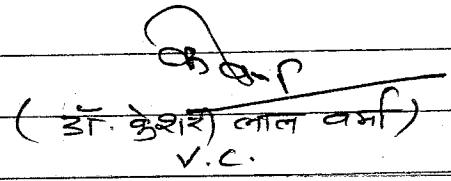 (डॉ. केशरी लाल वर्मा)
V.C.